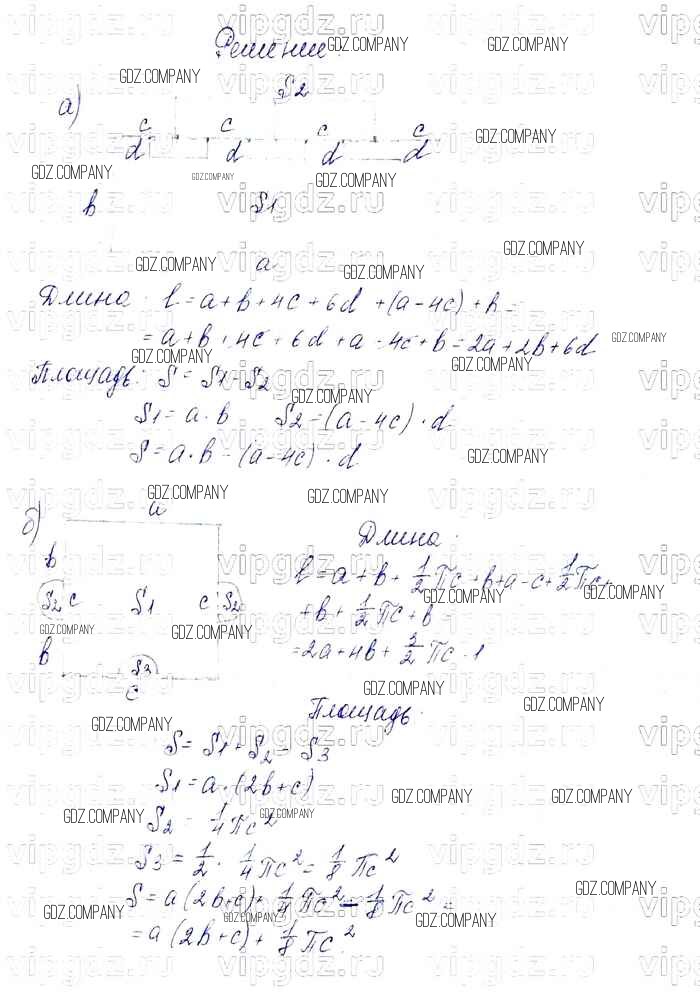 Решение:
а)
S2
c c c c
d d d d
b S1
a
Длина: l = a + b + 4c + 6d + (a - 4c) + b =
= a + b + 4c + 6d + a - 4c + b = 2a + 2b + 6d
Площадь: S = S1 - S2
S1 = a · b S2 = (a - 4c) · d
S = a · b - (a - 4c) · d
б)
a
b
S2 c S1 c S2
b
S3
c
Длина:
l = a + b + 1/2 πc + b + a - c + 1/2 πc +
+ b + 1/2 πc + b =
= 2a + 4b + 3/2 πc - 1
Площадь:
S = S1 + S2 - S3
S1 = a · (2b + c)
S2 = 1/4 πc²
S3 = 1/2 · 1/4 πc² = 1/8 πc²
S = a (2b + c) + 1/4 πc² - 1/8 πc² =
= a (2b + c) + 1/8 πc²
vipgdz.ru
GDZ.COMPANY